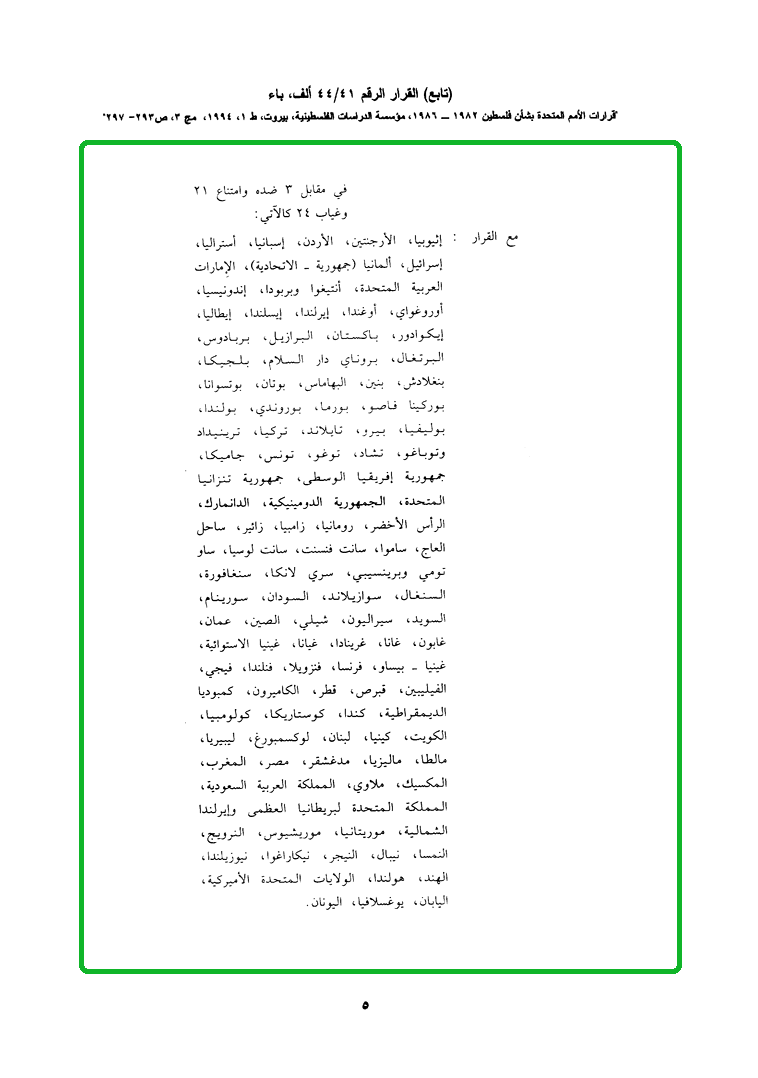 (تابع) القرار الرقم ٤٤/٤١ ألف، باء
"قرارات الأمم المتحدة بشأن فلسطين ١٩٨٢ ــ ١٩٨٦، مؤسسة الدراسات الفلسطينية، بيروت، ط ١، ١٩٩٤، مج ٣، ص٢٩٣- ٢٩٧"
في مقابل ٣ ضده وامتناع ٢١
وغياب ٢٤ كالآتي:
مع القرار : إثيوبيا، الأرجنتين، الأردن، إسبانيا، أستراليا،
إسرائيل، ألمانيا (جمهورية ـ الاتحادية)، الإمارات
العربية المتحدة، أنتيغوا وبربودا، إندونيسيا،
أوروغواي، أوغندا، إيرلندا، إيسلندا، إيطاليا،
إيكوادور، باكستان، البرازيل، بربادوس،
البرتغال، بروناي دار السلام، بلجيكا،
بنغلادش، بنين، البهاماس، بوتان، بوتسوانا،
بوركينا فاصو، بورما، بوروندي، بولندا،
بوليفيا، بيرو، تايلاند، تركيا، ترينيداد
وتوباغو، تشاد، توغو، تونس، جاميكا،
جمهورية إفريقيا الوسطى، جمهورية تنزانيا
المتحدة، الجمهورية الدومينيكية، الدانمارك،
الرأس الأخضر، رومانيا، زامبيا، زائير، ساحل
العاج، ساموا، سانت فنسنت، سانت لوسيا، ساو
تومي وبرينسيبي، سري لانكا، سنغافورة،
السنغال، سوازيلاند، السودان، سورينام،
السويد، سيراليون، شيلي، الصين، عمان،
غابون، غانا، غرينادا، غيانا، غينيا الاستوائية،
غينيا ـ بيساو، فرنسا، فنزويلا، فنلندا، فيجي،
الفيليبين، قبرص، قطر، الكاميرون، كمبوديا
الديمقراطية، كندا، كوستاريكا، كولومبيا،
الكويت، كينيا، لبنان، لوكسمبورغ، ليبيريا،
مالطا، ماليزيا، مدغشقر، مصر، المغرب،
المكسيك، ملاوي، المملكة العربية السعودية،
المملكة المتحدة لبريطانيا العظمى وإيرلندا
الشمالية، موريتانيا، موريشيوس، النرويج،
النمسا، نيبال، النيجر، نيكاراغوا، نيوزيلندا،
الهند، هولندا، الولايات المتحدة الأميركية،
اليابان، يوغسلافيا، اليونان.
٥